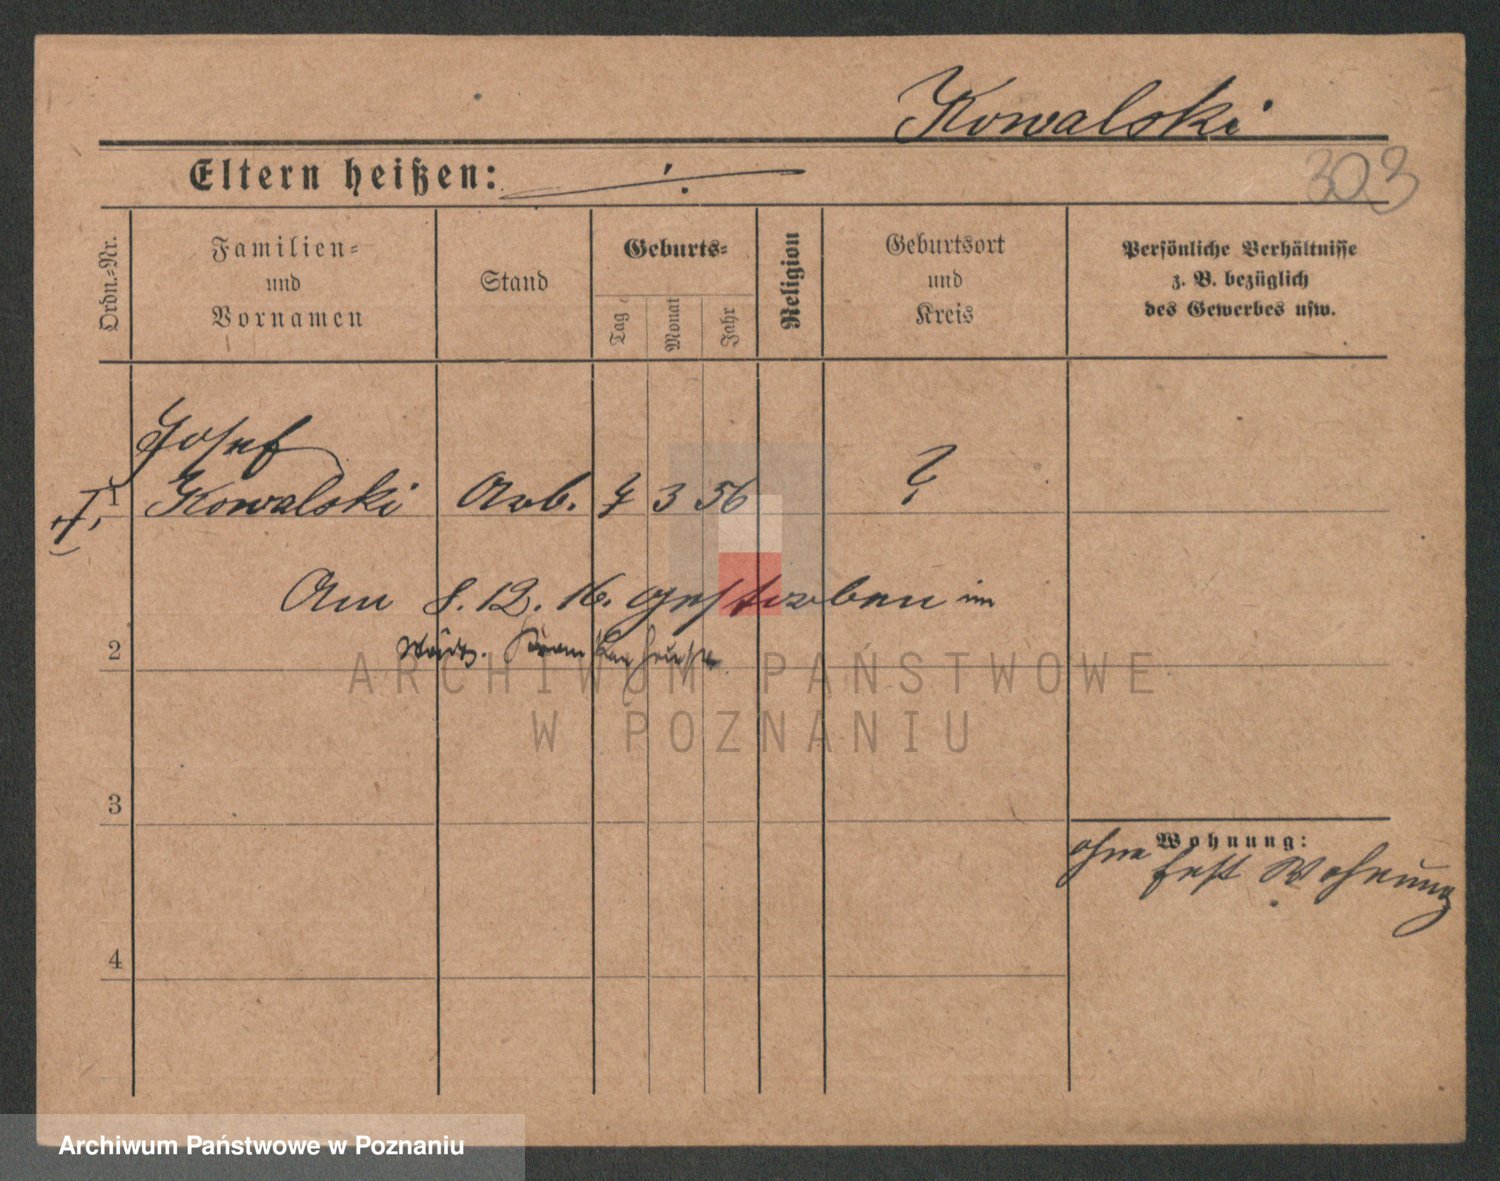 Kowalski
303
Eltern heißen: ./.
Ordn.-Nr.
Familien-
und
Vornamen
Stand
Geburts-
Tag
Monat
Jahr
Religion
Geburtsort
und
Kreis
Persönliche Verhältnisse
z. B. bezüglich
des Gewerbes usw.
Josef
1 Kowalski Arb. 7 3 56 ?
Am 8.12.16. gestorben im
2 städt. Krankenhause
ARCHIWUM PAŃSTWOWE
W POZNANIU
3
Wohnung:
ohne fest Wohnung
4
Archiwum Państwowe w Poznaniu